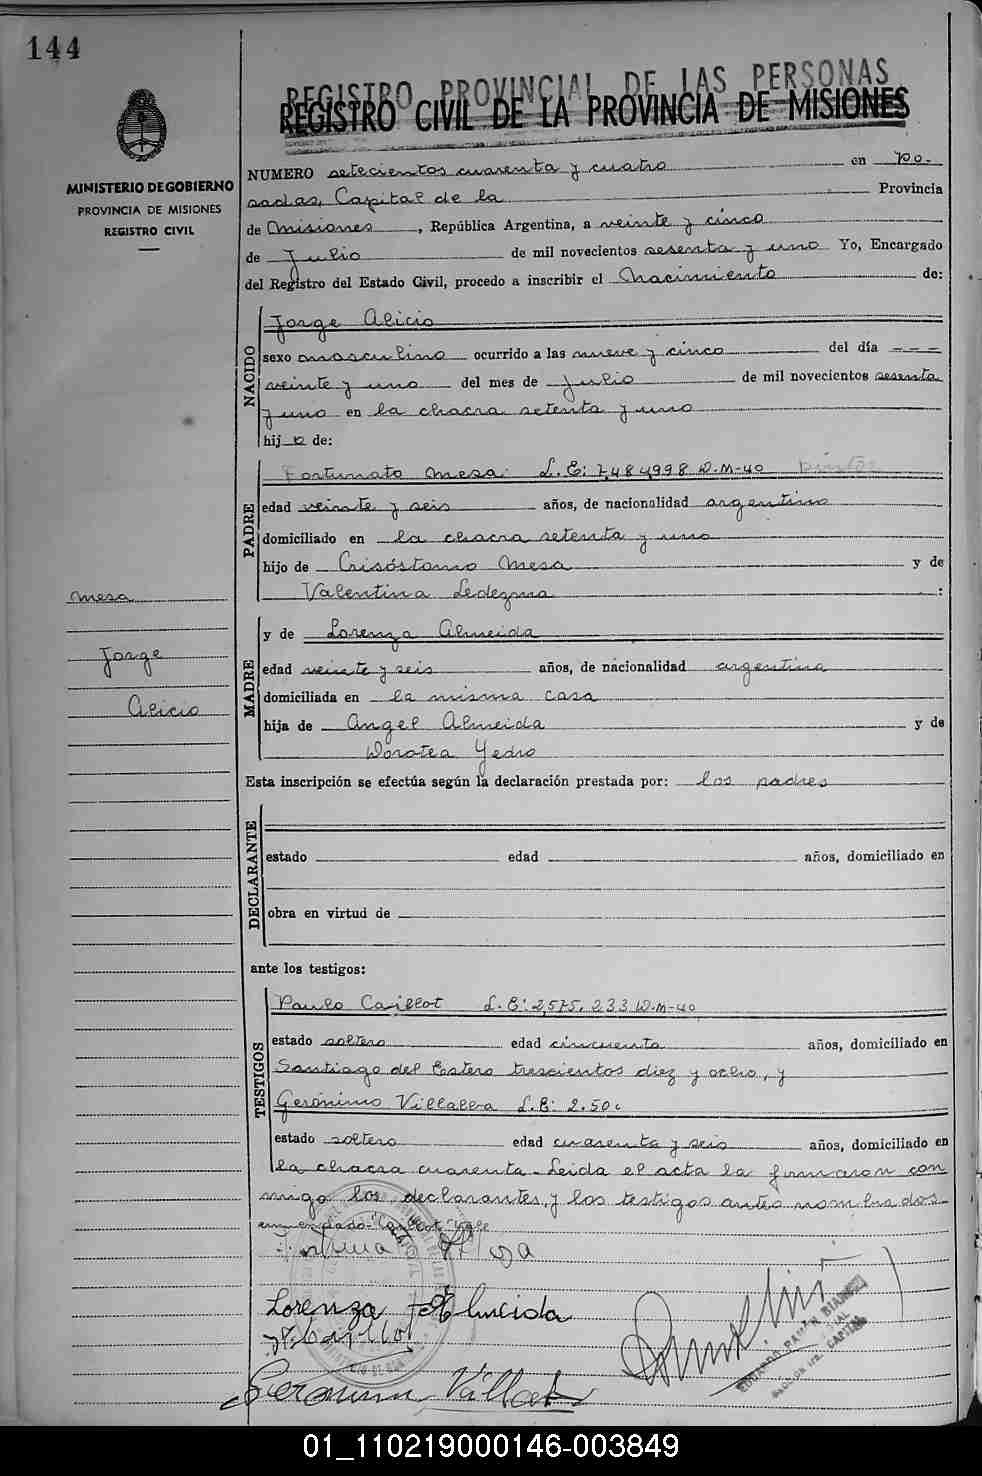 144
REGISTRO PROVINCIAL DE LAS PERSONAS
REGISTRO CIVIL DE LA PROVINCIA DE MISIONES
MINISTERIO DE GOBIERNO
PROVINCIA DE MISIONES
REGISTRO CIVIL
NUMERO setecientos cuarenta y cuatro en Po-
sadas, Capital de la Provincia
de Misiones, República Argentina, a veinte y cinco
de Julio de mil novecientos sesenta y uno Yo, Encargado
del Registro del Estado Civil, procedo a inscribir el Nacimiento de:
NACIDO
Jorge Alicio
sexo masculino ocurrido a las nueve y cinco del día ---
veinte y uno del mes de Julio de mil novecientos sesenta
y uno en la chacra setenta y uno
hij o de:
PADRE
Fortunato Mesa L.E: 7,484,998 D.M-40
edad veinte y seis años, de nacionalidad argentino
domiciliado en la chacra setenta y uno
hijo de Crisóstomo Mesa y de
Valentina Ledezma :
Mesa
Jorge
Alicio
MADRE
y de Lorenza Almeida
edad veinte y seis años, de nacionalidad argentina
domiciliada en la misma casa
hija de Angel Almeida y de
Dorotea Yedro
Esta inscripción se efectúa según la declaración prestada por: los padres
DECLARANTE
estado edad años, domiciliado en
obra en virtud de
ante los testigos:
TESTIGOS
Paulo Caillot L.E: 2,575.233 D.M-40
estado soltero edad cincuenta años, domiciliado en
Santiago del Estero trescientos diez y ocho, y
Gerónimo Villalba L.E: 2.50
estado soltero edad cuarenta y seis años, domiciliado en
la chacra cuarenta-Leida el acta la firmaron con
migo los declarantes, y los testigos antes nombrados-
enmendado-"Caillot" Vale
Lorenza Almeida
EDUARDO RAMON
01_110219000146-003849